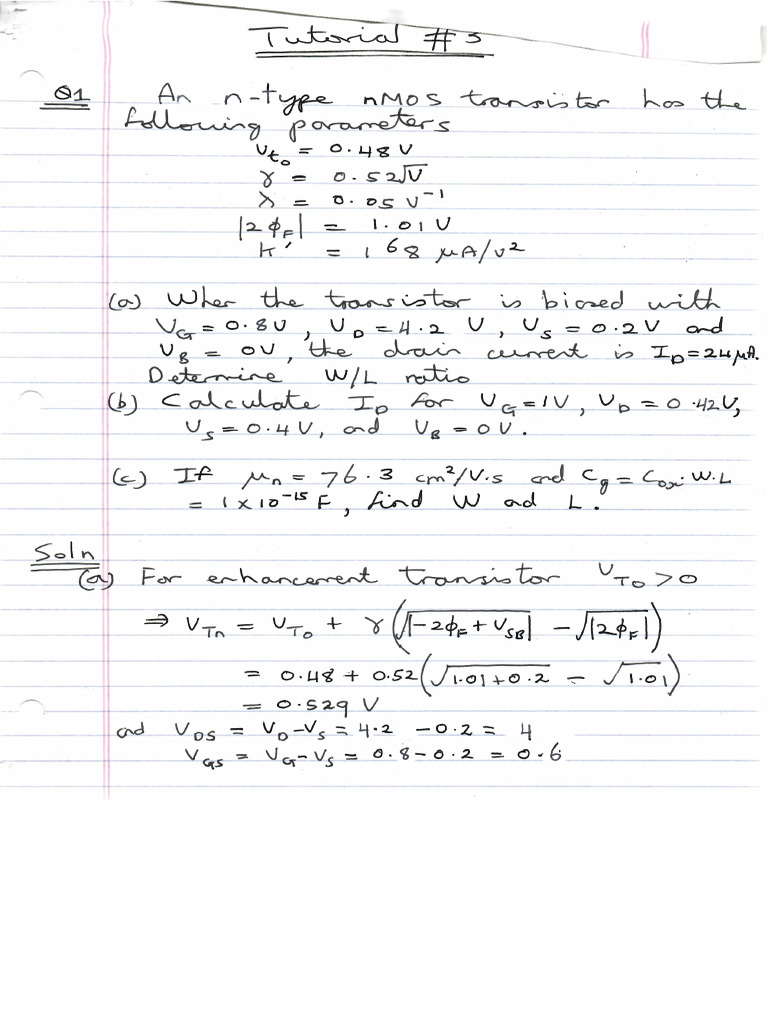 Tutorial #3
Q1 An n-type nMOS transistor has the
following parameters
Vt₀ = 0.48 V
γ = 0.52√V
λ = 0.05 V⁻¹
|2φF| = 1.01 V
K' = 168 μA/V²
(a) When the transistor is biased with
VG = 0.8V, VD = 4.2 V, VS = 0.2V and
VB = 0V, the drain current is ID = 24μA.
Determine W/L ratio
(b) Calculate ID for VG = 1V, VD = 0.42V,
VS = 0.4V, and VB = 0V.
(c) If μn = 76.3 cm²/V.s and Cg = Cox.W.L
= 1 × 10⁻¹⁵ F, find W and L.
Soln
(a) For enhancement transistor VTO > 0
⇒ VTn = VTO + γ(√|-2φF + VSB| - √|2φF|)
= 0.48 + 0.52(√1.01+0.2 - √1.01)
= 0.529 V
and VDS = VD - VS = 4.2 - 0.2 = 4
VGS = VG - VS = 0.8 - 0.2 = 0.6